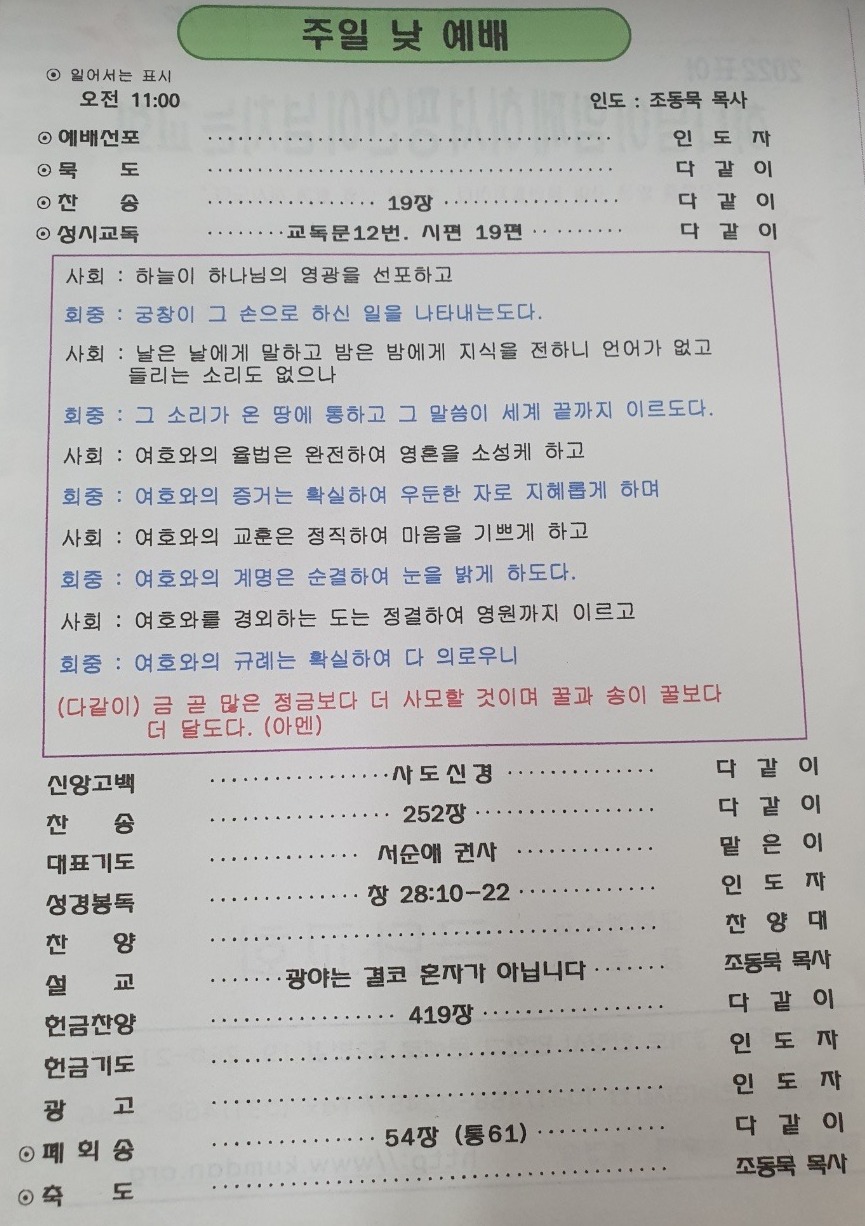 주일 낮 예배
⊙ 일어서는 표시
오전 11:00 인도 : 조동묵 목사
⊙ 예배선포 ········ 인 도 자
⊙ 묵 도 ········ 다 같 이
⊙ 찬 송 ········ 19장 ········ 다 같 이
⊙ 성시교독 ········ 교독문12번. 시편 19편 ········ 다 같 이
사회 : 하늘이 하나님의 영광을 선포하고
회중 : 궁창이 그 손으로 하신 일을 나타내는도다.
사회 : 날은 날에게 말하고 밤은 밤에게 지식을 전하니 언어가 없고
들리는 소리도 없으나
회중 : 그 소리가 온 땅에 통하고 그 말씀이 세계 끝까지 이르도다.
사회 : 여호와의 율법은 완전하여 영혼을 소성케 하고
회중 : 여호와의 증거는 확실하여 우둔한 자로 지혜롭게 하며
사회 : 여호와의 교훈은 정직하여 마음을 기쁘게 하고
회중 : 여호와의 계명은 순결하여 눈을 밝게 하도다.
사회 : 여호와를 경외하는 도는 정결하여 영원까지 이르고
회중 : 여호와의 규례는 확실하여 다 의로우니
(다같이) 금 곧 많은 정금보다 더 사모할 것이며 꿀과 송이 꿀보다
더 달도다. (아멘)
신앙고백 ········ 사도신경 ········ 다 같 이
찬 송 ········ 252장 ········ 다 같 이
대표기도 ········ 서순애 권사 ········ 맡 은 이
성경봉독 ········ 창 28:10-22 ········ 인 도 자
찬 양 ········ 찬 양 대
설 교 ········ 광야는 결코 혼자가 아닙니다 ········ 조동묵 목사
헌금찬양 ········ 419장 ········ 다 같 이
헌금기도 ········ 인 도 자
광 고 ········ 인 도 자
⊙ 폐 회 송 ········ 54장 (통61) ········ 다 같 이
⊙ 축 도 ········ 조동묵 목사